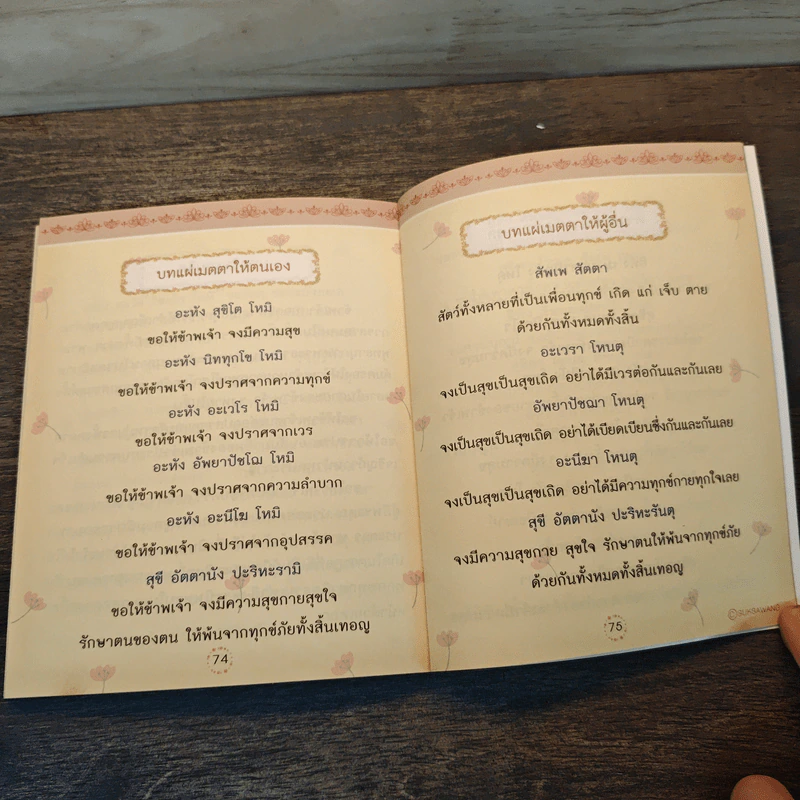 บทแผ่เมตตาให้ตนเอง
อะหัง สุขิโต โหมิ
ขอให้ข้าพเจ้า จงมีความสุข
อะหัง นิททุกโข โหมิ
ขอให้ข้าพเจ้า จงปราศจากความทุกข์
อะหัง อะเวโร โหมิ
ขอให้ข้าพเจ้า จงปราศจากเวร
อะหัง อัพยาปัชโฌ โหมิ
ขอให้ข้าพเจ้า จงปราศจากความลำบาก
อะหัง อะนีโฆ โหมิ
ขอให้ข้าพเจ้า จงปราศจากอุปสรรค
สุขี อัตตานัง ปะริหะรามิ
ขอให้ข้าพเจ้า จงมีความสุขกายสุขใจ
รักษาตนของตน ให้พ้นจากทุกข์ภัยทั้งสิ้นเทอญ
74
บทแผ่เมตตาให้ผู้อื่น
สัพเพ สัตตา
สัตว์ทั้งหลายที่เป็นเพื่อนทุกข์ เกิด แก่ เจ็บ ตาย
ด้วยกันทั้งหมดทั้งสิ้น
อะเวรา โหนตุ
จงเป็นสุขเป็นสุขเถิด อย่าได้มีเวรต่อกันและกันเลย
อัพยาปัชฌา โหนตุ
จงเป็นสุขเป็นสุขเถิด อย่าได้เบียดเบียนซึ่งกันและกันเลย
อะนีฆา โหนตุ
จงเป็นสุขเป็นสุขเถิด อย่าได้มีความทุกข์กายทุกใจเลย
สุขี อัตตานัง ปะริหะรันตุ
จงมีความสุขกาย สุขใจ รักษาตนให้พ้นจากทุกข์ภัย
ด้วยกันทั้งหมดทั้งสิ้นเทอญ
75